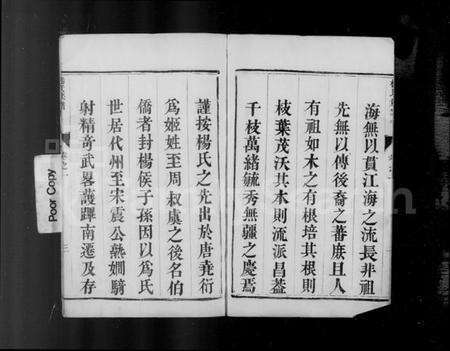 海無以貫江海之流長非祖
先無以傳後裔之蕃庶且人
有祖如木之有根培其根則
枝葉茂沃其木則流派昌葢
千枝萬緒毓秀無疆之慶焉
謹按楊氏之先出於唐堯衍
為姬姓至周叔虞之後名伯
僑者封楊侯子孫因以為氏
世居代州至宋震公熱嫺騎
射精奇武畧護蹕南遷及存
Poor Copy